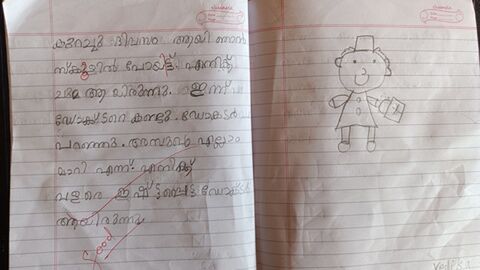 കുറച്ചു ദിവസം ആയി ഞാൻ
സ്കൂളിൽ പോയിട്ട്. എനിക്ക്
ആയിരുന്നു. ഇന്ന്
ഡോക്ടറെ കണ്ടു. ഡോക്ടർ
പറഞ്ഞു. അസുഖം എല്ലാം
മാറി എന്ന്. എനിക്ക്
വളരെ ഇഷ്ട്ടപ്പെട്ട ഡോക്ടർ
ആയിരുന്നു
Good